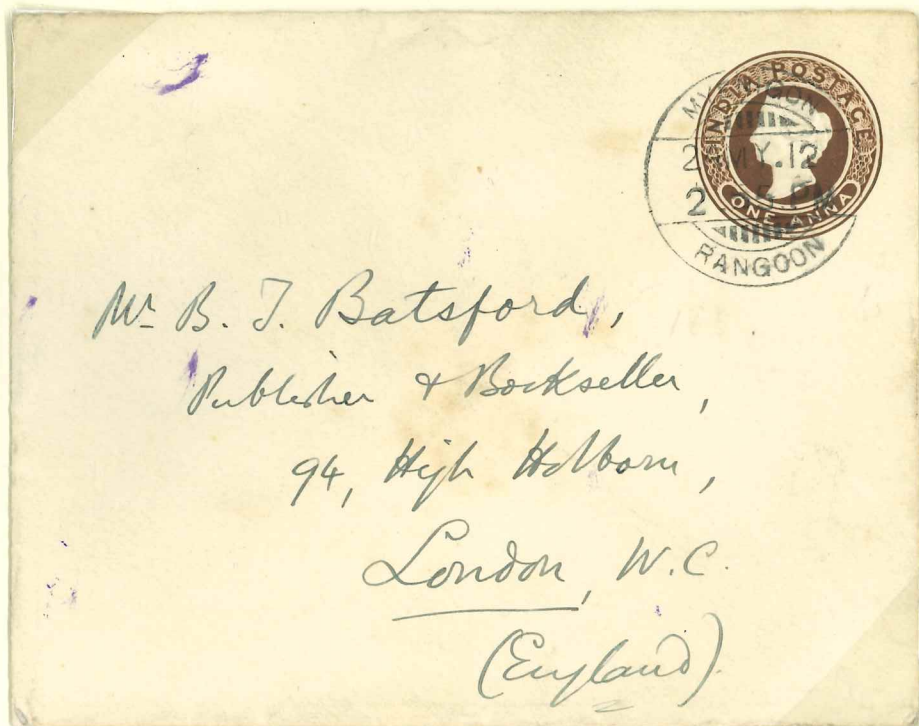 INDIA POSTAGE
ONE ANNA
MY.12
PM
RANGOON
Mr B. T. Batsford,
Publisher & Bookseller,
94, High Holborn,
London, W.C.
(England).